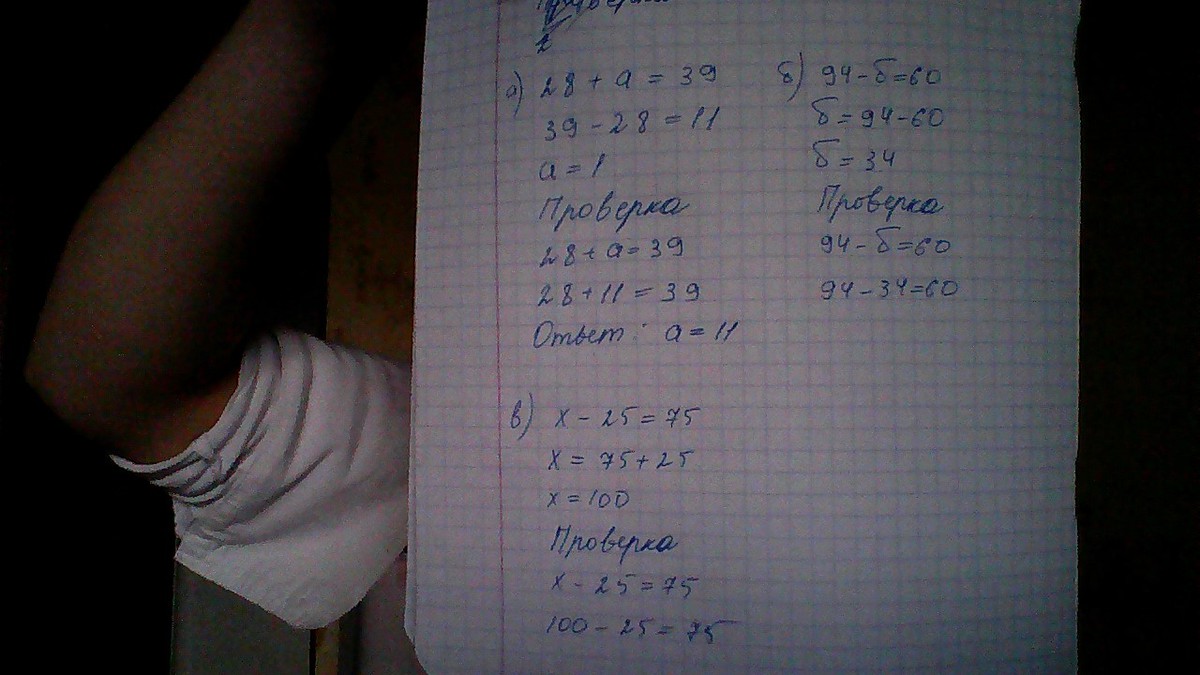 2
а) 28 + а = 39
39 - 28 = 11
а = 1
Проверка
28 + а = 39
28 + 11 = 39
Ответ: а = 11
б) 94 - б = 60
б = 94 - 60
б = 34
Проверка
94 - б = 60
94 - 34 = 60
в) х - 25 = 75
х = 75 + 25
х = 100
Проверка
х - 25 = 75
100 - 25 = 75